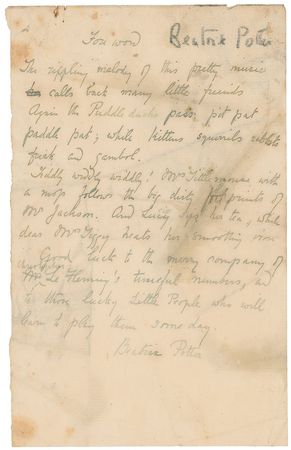 Foreword
Beatrix Potter
The rippling melody of this pretty music
calls back many little friends
Again the Puddleducks pass, pit pat
paddle pat; while kittens squirrels rabbits
frisk and gambol.
Tiddly widdly widdly! Mrs Tittlemouse with
a mop follows the dirty footprints of
Mr Jackson. And Lucy sips her tea, while
dear Mrs Tiggy heats her smoothing iron
Good luck to the merry company of
Le Fleming's tuneful numbers, and
to those lucky Little People who will
learn to play them some day.
Beatrix Potter